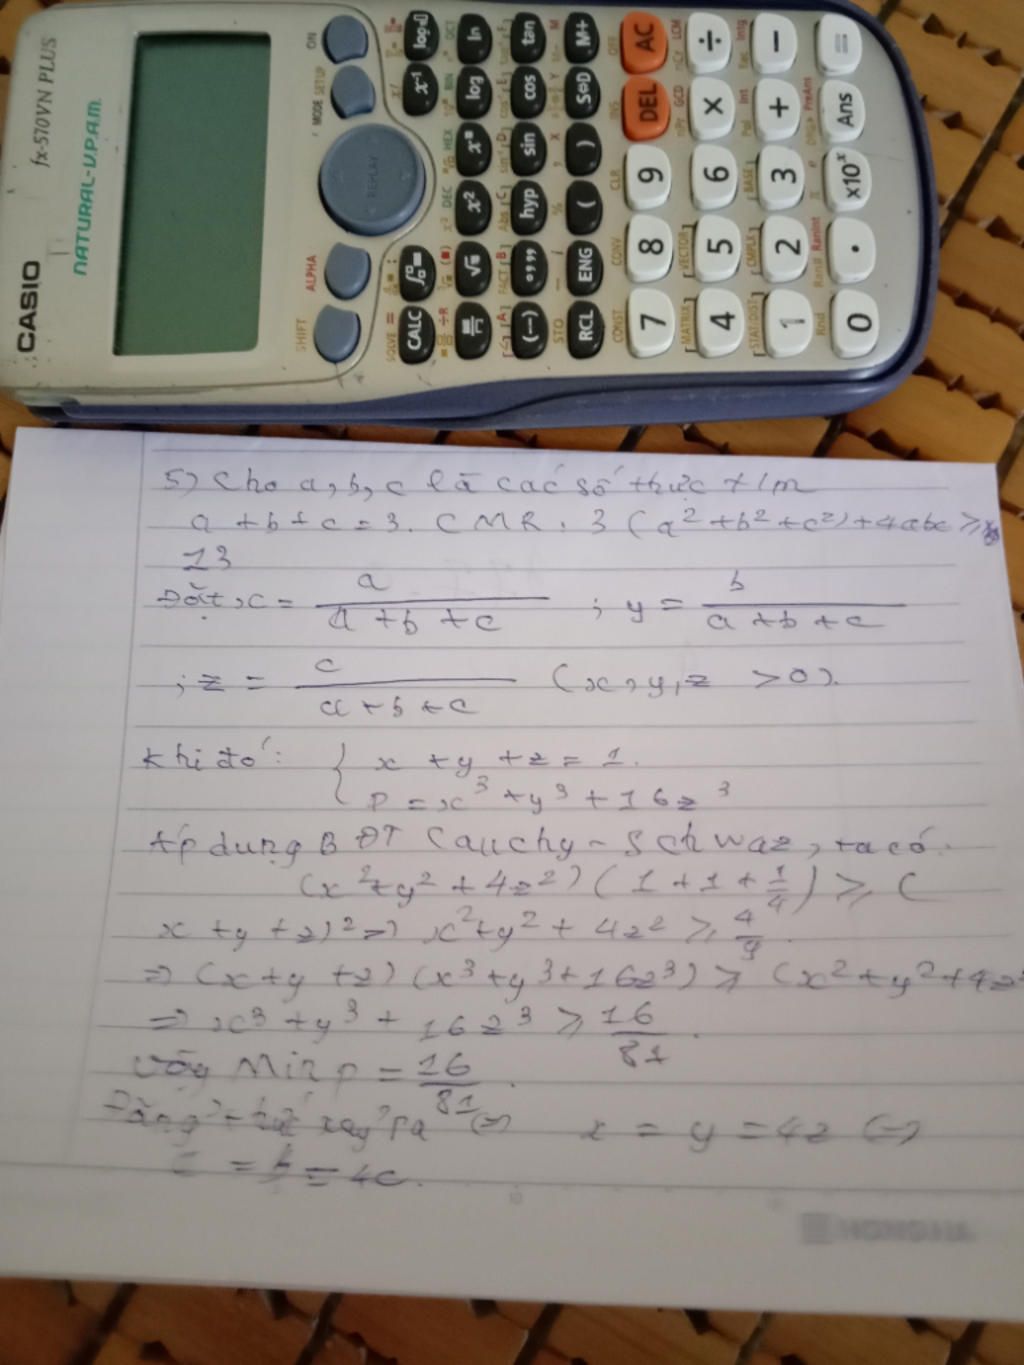 CASIO
fx-570VN PLUS
NATURAL-V.P.A.M.
SHIFT ALPHA REPLAY MODE SETUP ON
CALC ∫ x⁻¹ log
√ x² log ln
(−) °,,, hyp sin cos tan
RCL ENG ( ) S⇔D M+
7 8 9 DEL AC
4 5 6 × ÷
1 2 3 + −
0 . ×10ˣ Ans =
5) Cho a, b, c là các số thực t/m
a + b + c = 3. CMR: 3 (a² + b² + c²) + 4abc ≥
13
Đặt x = a/(a + b + c) ; y = b/(a + b + c)
; z = c/(a + b + c) (x, y, z > 0).
Khi đó: { x + y + z = 1.
P = x³ + y³ + 16z³
Áp dụng BĐT Cauchy - Schwaz, ta có:
(x² + y² + 4z²)(1 + 1 + 1/4) ≥ (
x + y + z)² => x² + y² + 4z² ≥ 4/9.
=> (x + y + z)(x³ + y³ + 16z³) ≥ (x² + y² + 4z²
=> x³ + y³ + 16z³ ≥ 16/81.
Vậy Min P = 16/81.
Đẳng thức xảy ra <=> x = y = 4z <=>
= b = 4c.